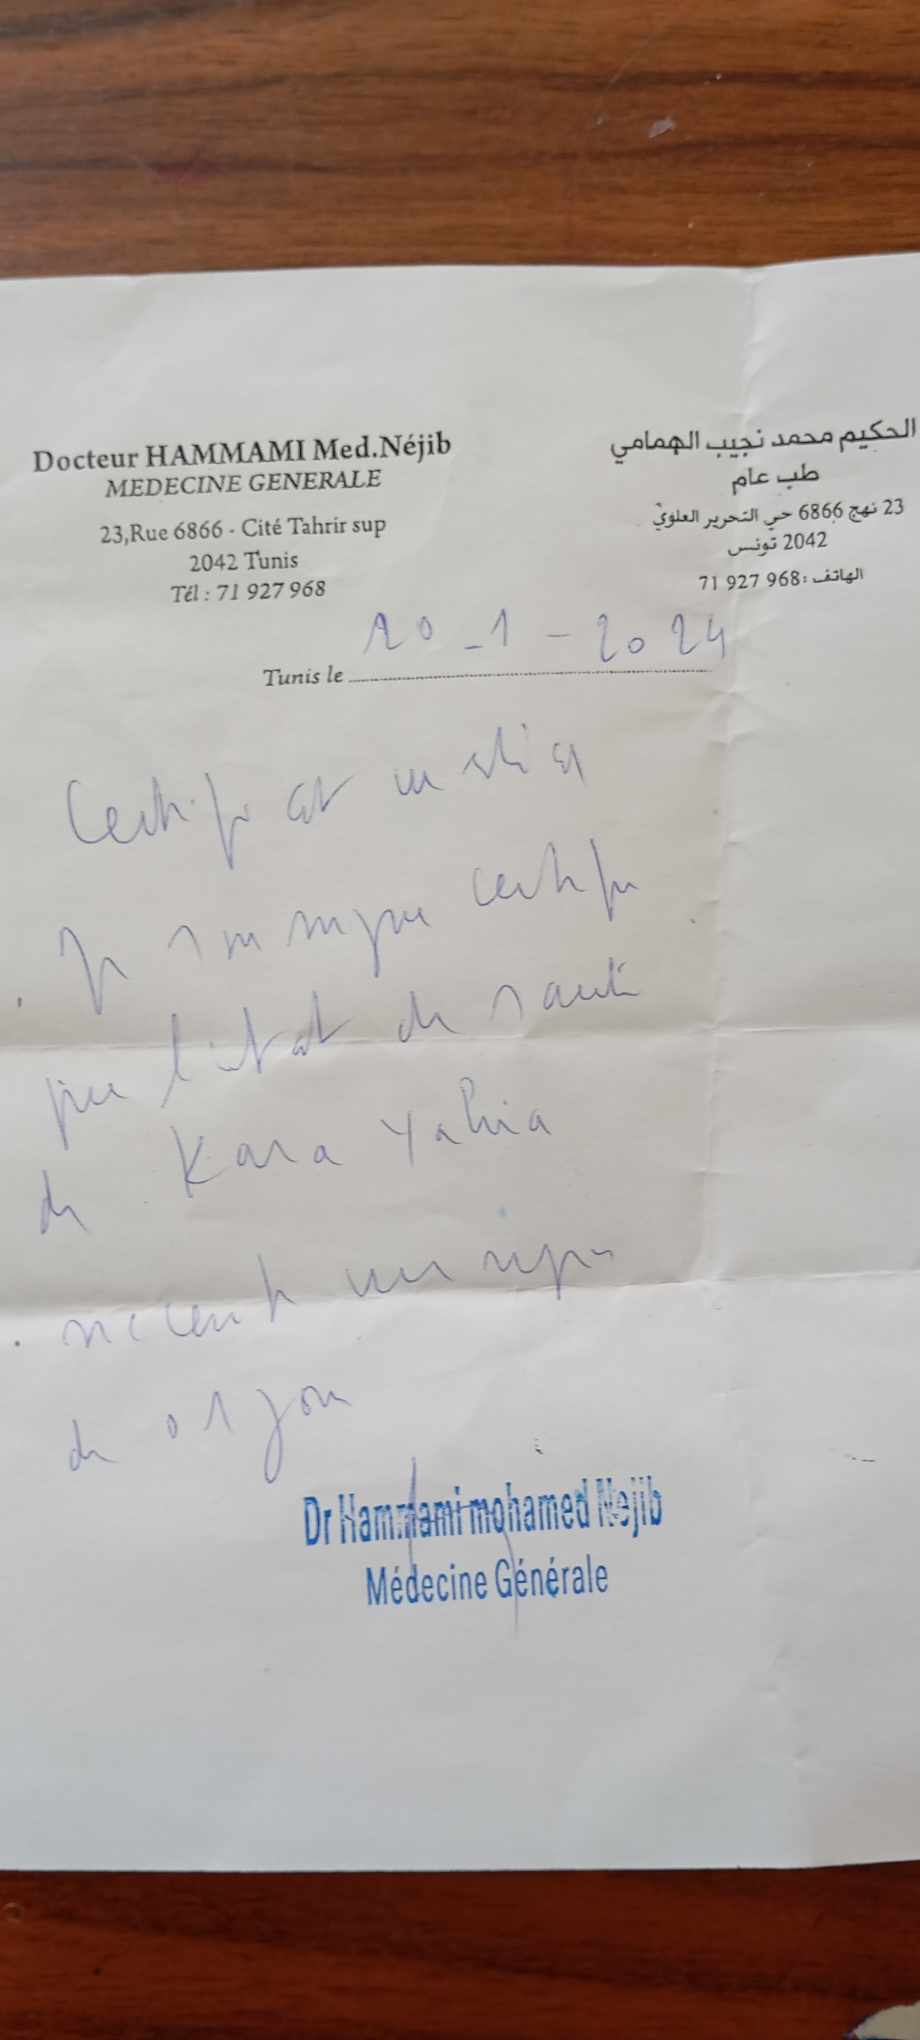 Docteur HAMMAMI Med.Néjib
MEDECINE GENERALE
23,Rue 6866 - Cité Tahrir sup
2042 Tunis
Tél : 71 927 968
الحكيم محمد نجيب الهمامي
طب عام
23 نهج 6866 حي التحرير العلوي
2042 تونس
الهاتف : 71 927 968
Tunis le 20-1-2024
Certificat médical
Je soussigné certifie
que l'état de santé
de Kara Yahia
nécessite un repos
de 01 jour
Dr Hammami mohamed Nejib
Médecine Générale